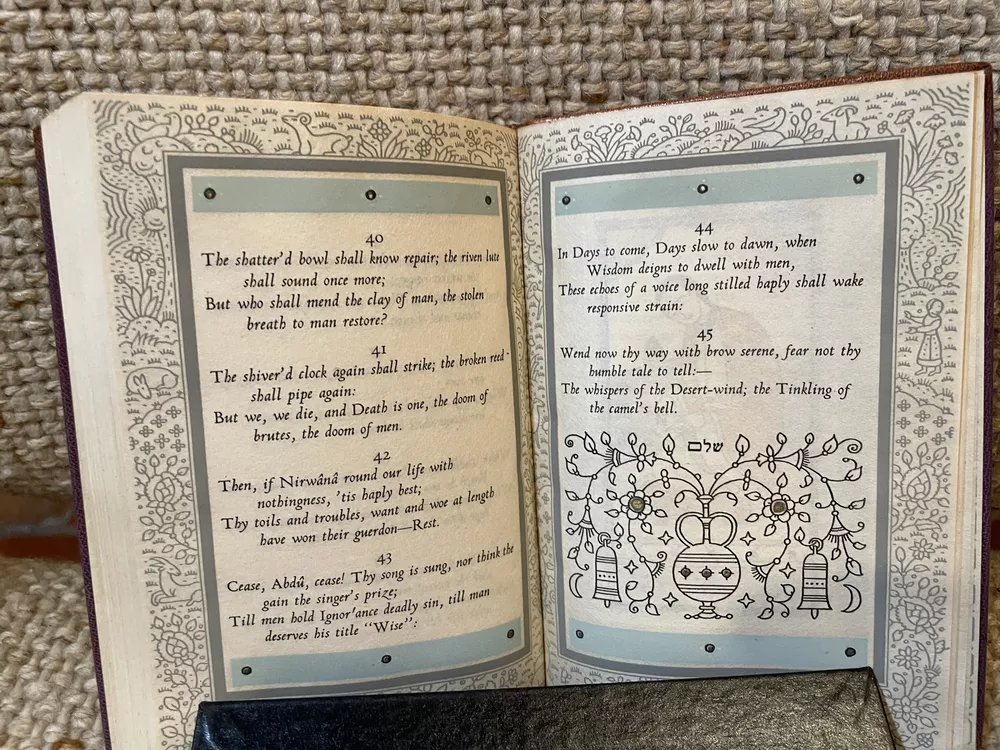 40
The shatter'd bowl shall know repair; the riven lute
shall sound once more;
But who shall mend the clay of man, the stolen
breath to man restore?
41
The shiver'd clock again shall strike; the broken reed
shall pipe again:
But we, we die, and Death is one, the doom of
brutes, the doom of men.
42
Then, if Nirwânâ round our life with
nothingness, 'tis haply best;
Thy toils and troubles, want and woe at length
have won their guerdon—Rest.
43
Cease, Abdû, cease! Thy song is sung, nor think the
gain the singer's prize;
Till men hold Ignor'ance deadly sin, till man
deserves his title "Wise":
44
In Days to come, Days slow to dawn, when
Wisdom deigns to dwell with men,
These echoes of a voice long stilled haply shall wake
responsive strain:
45
Wend now thy way with brow serene, fear not thy
humble tale to tell:—
The whispers of the Desert-wind; the Tinkling of
the camel's bell.
שלם